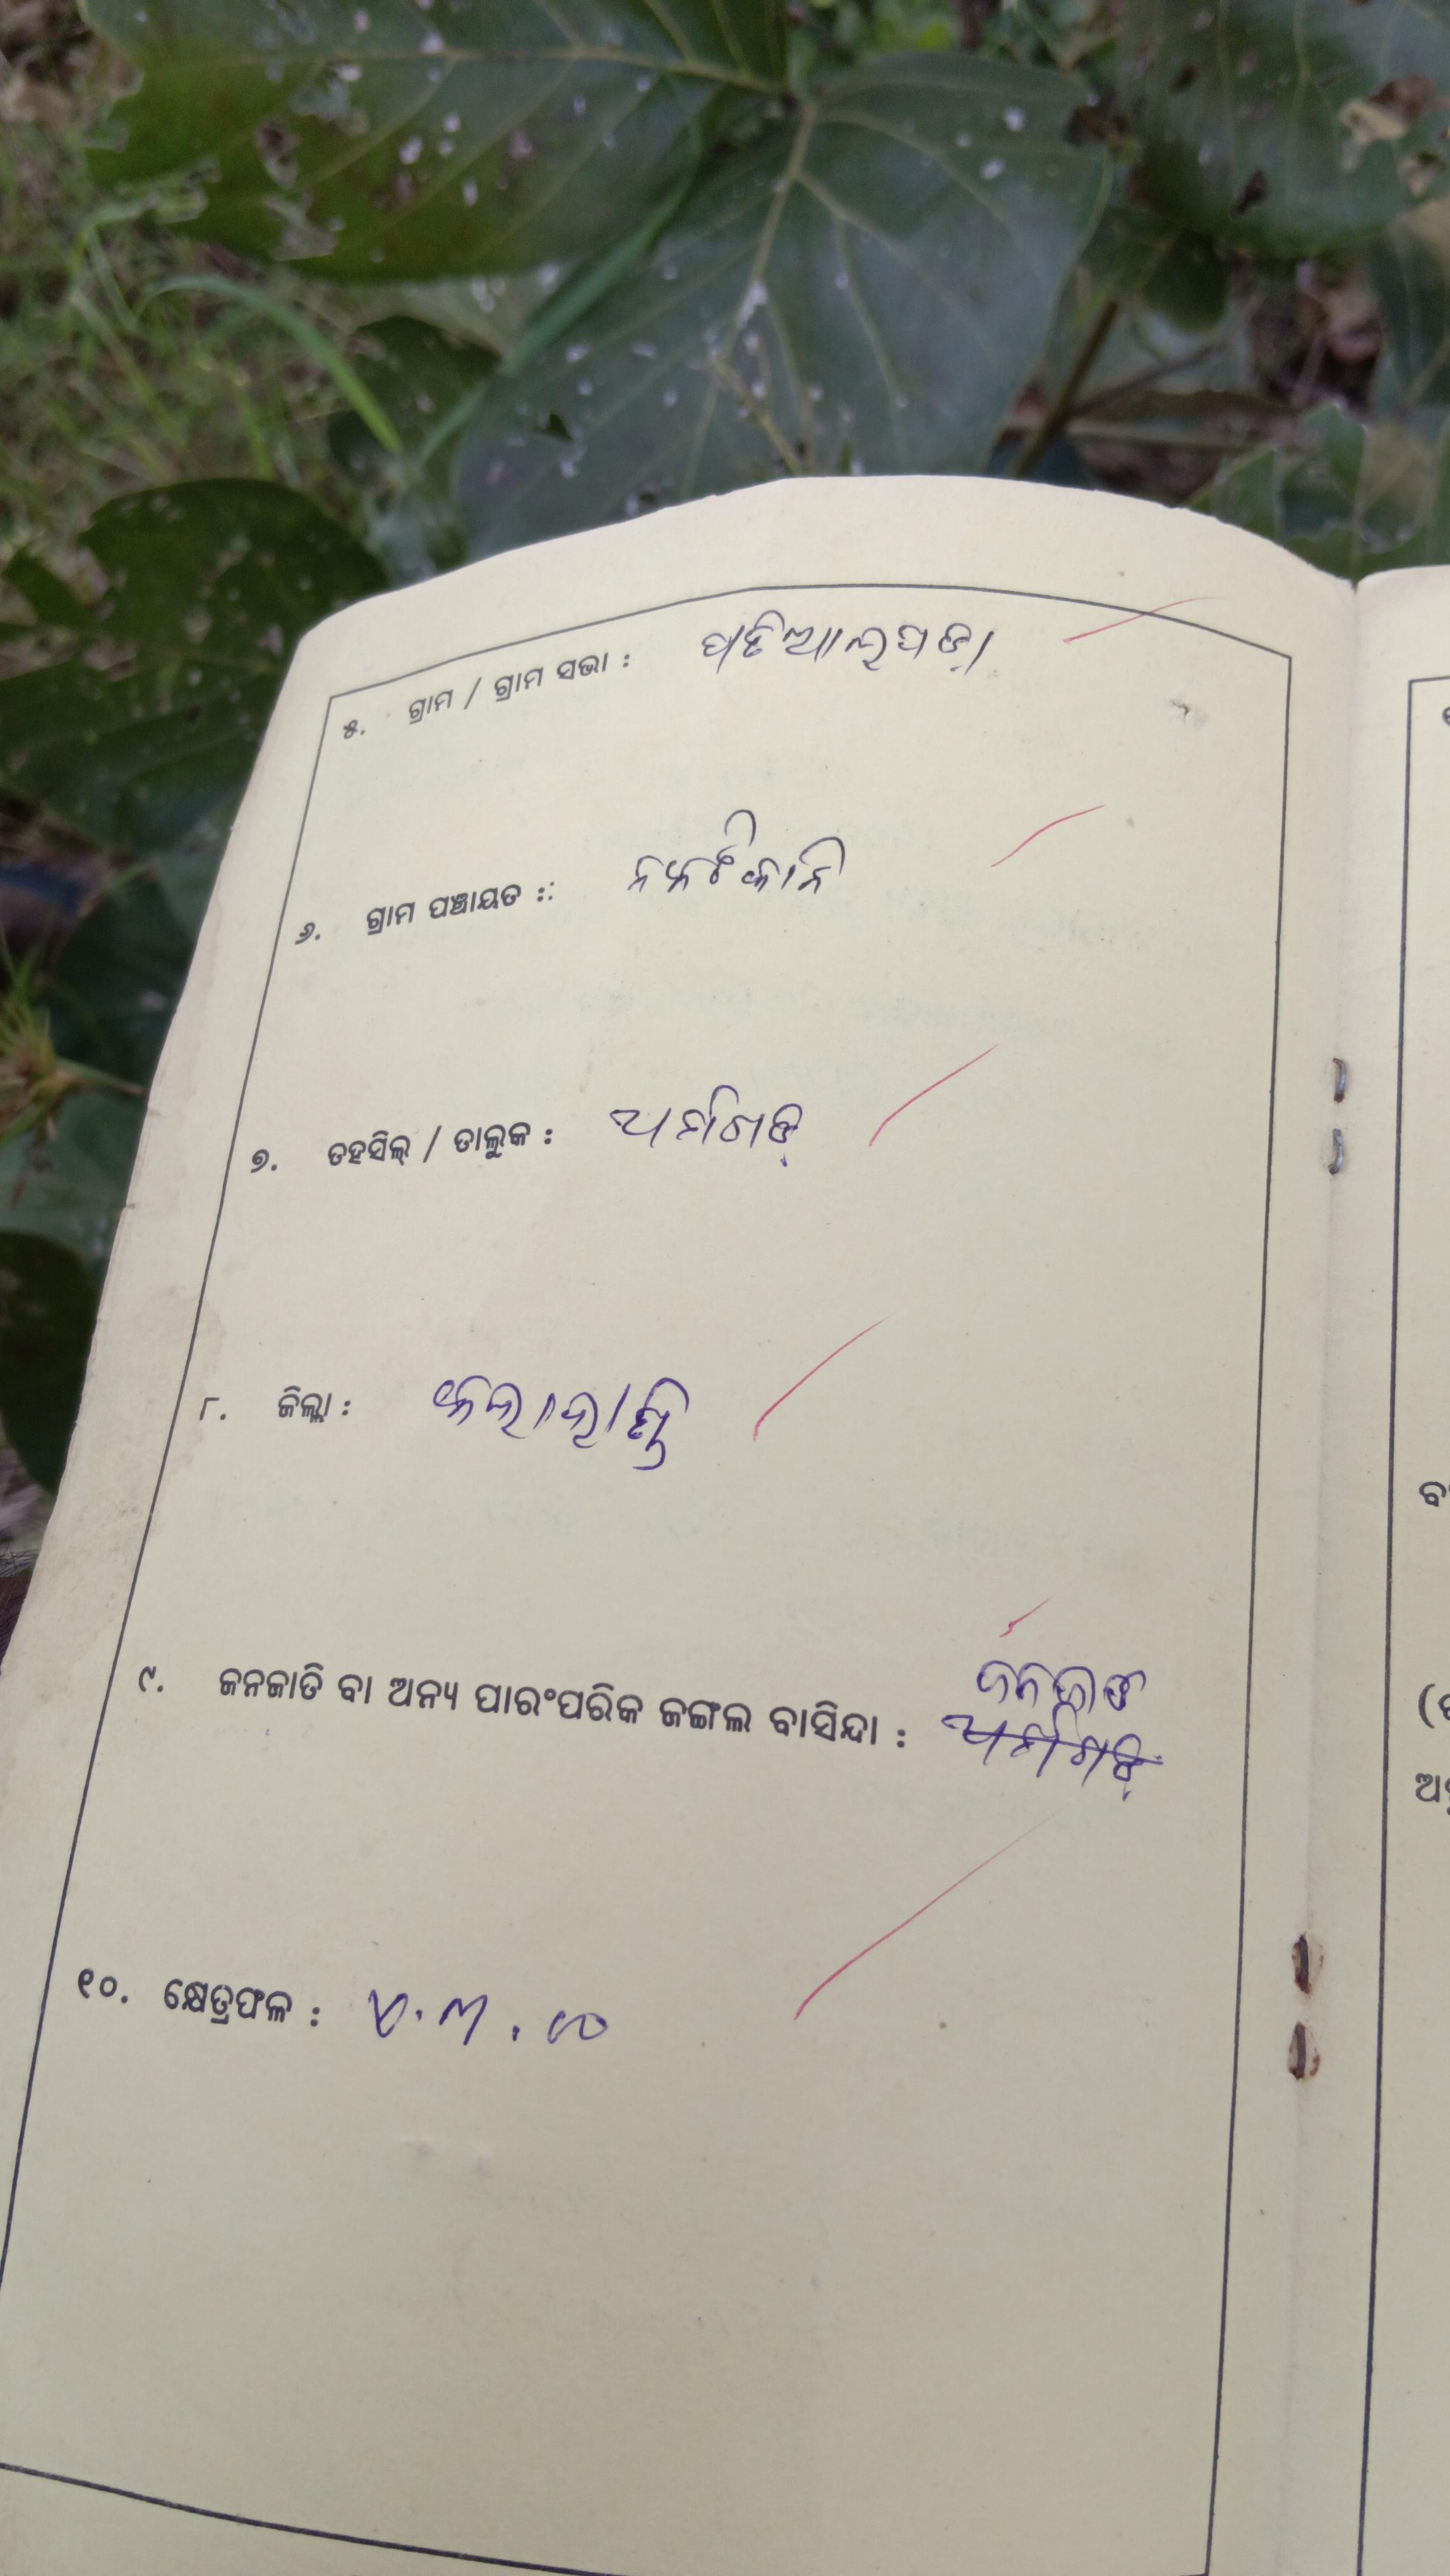 ୫. ଗ୍ରାମ / ଗ୍ରାମ ସଭା : ପହିଆଲପଡ଼ା
୬. ଗ୍ରାମ ପଞ୍ଚାୟତ :: ନକଟିକାନି
୭. ତହସିଲ୍ / ତାଲୁକ : ଅର୍ମାଗଡ଼
୮. ଜିଲ୍ଲା : କଳାହାଣ୍ଡି
୯. ଜନଜାତି ବା ଅନ୍ୟ ପାରଂପରିକ ଜଙ୍ଗଲ ବାସିନ୍ଦା : ଜନଜାତି
୧୦. କ୍ଷେତ୍ରଫଳ :
ବ
(
ଅ